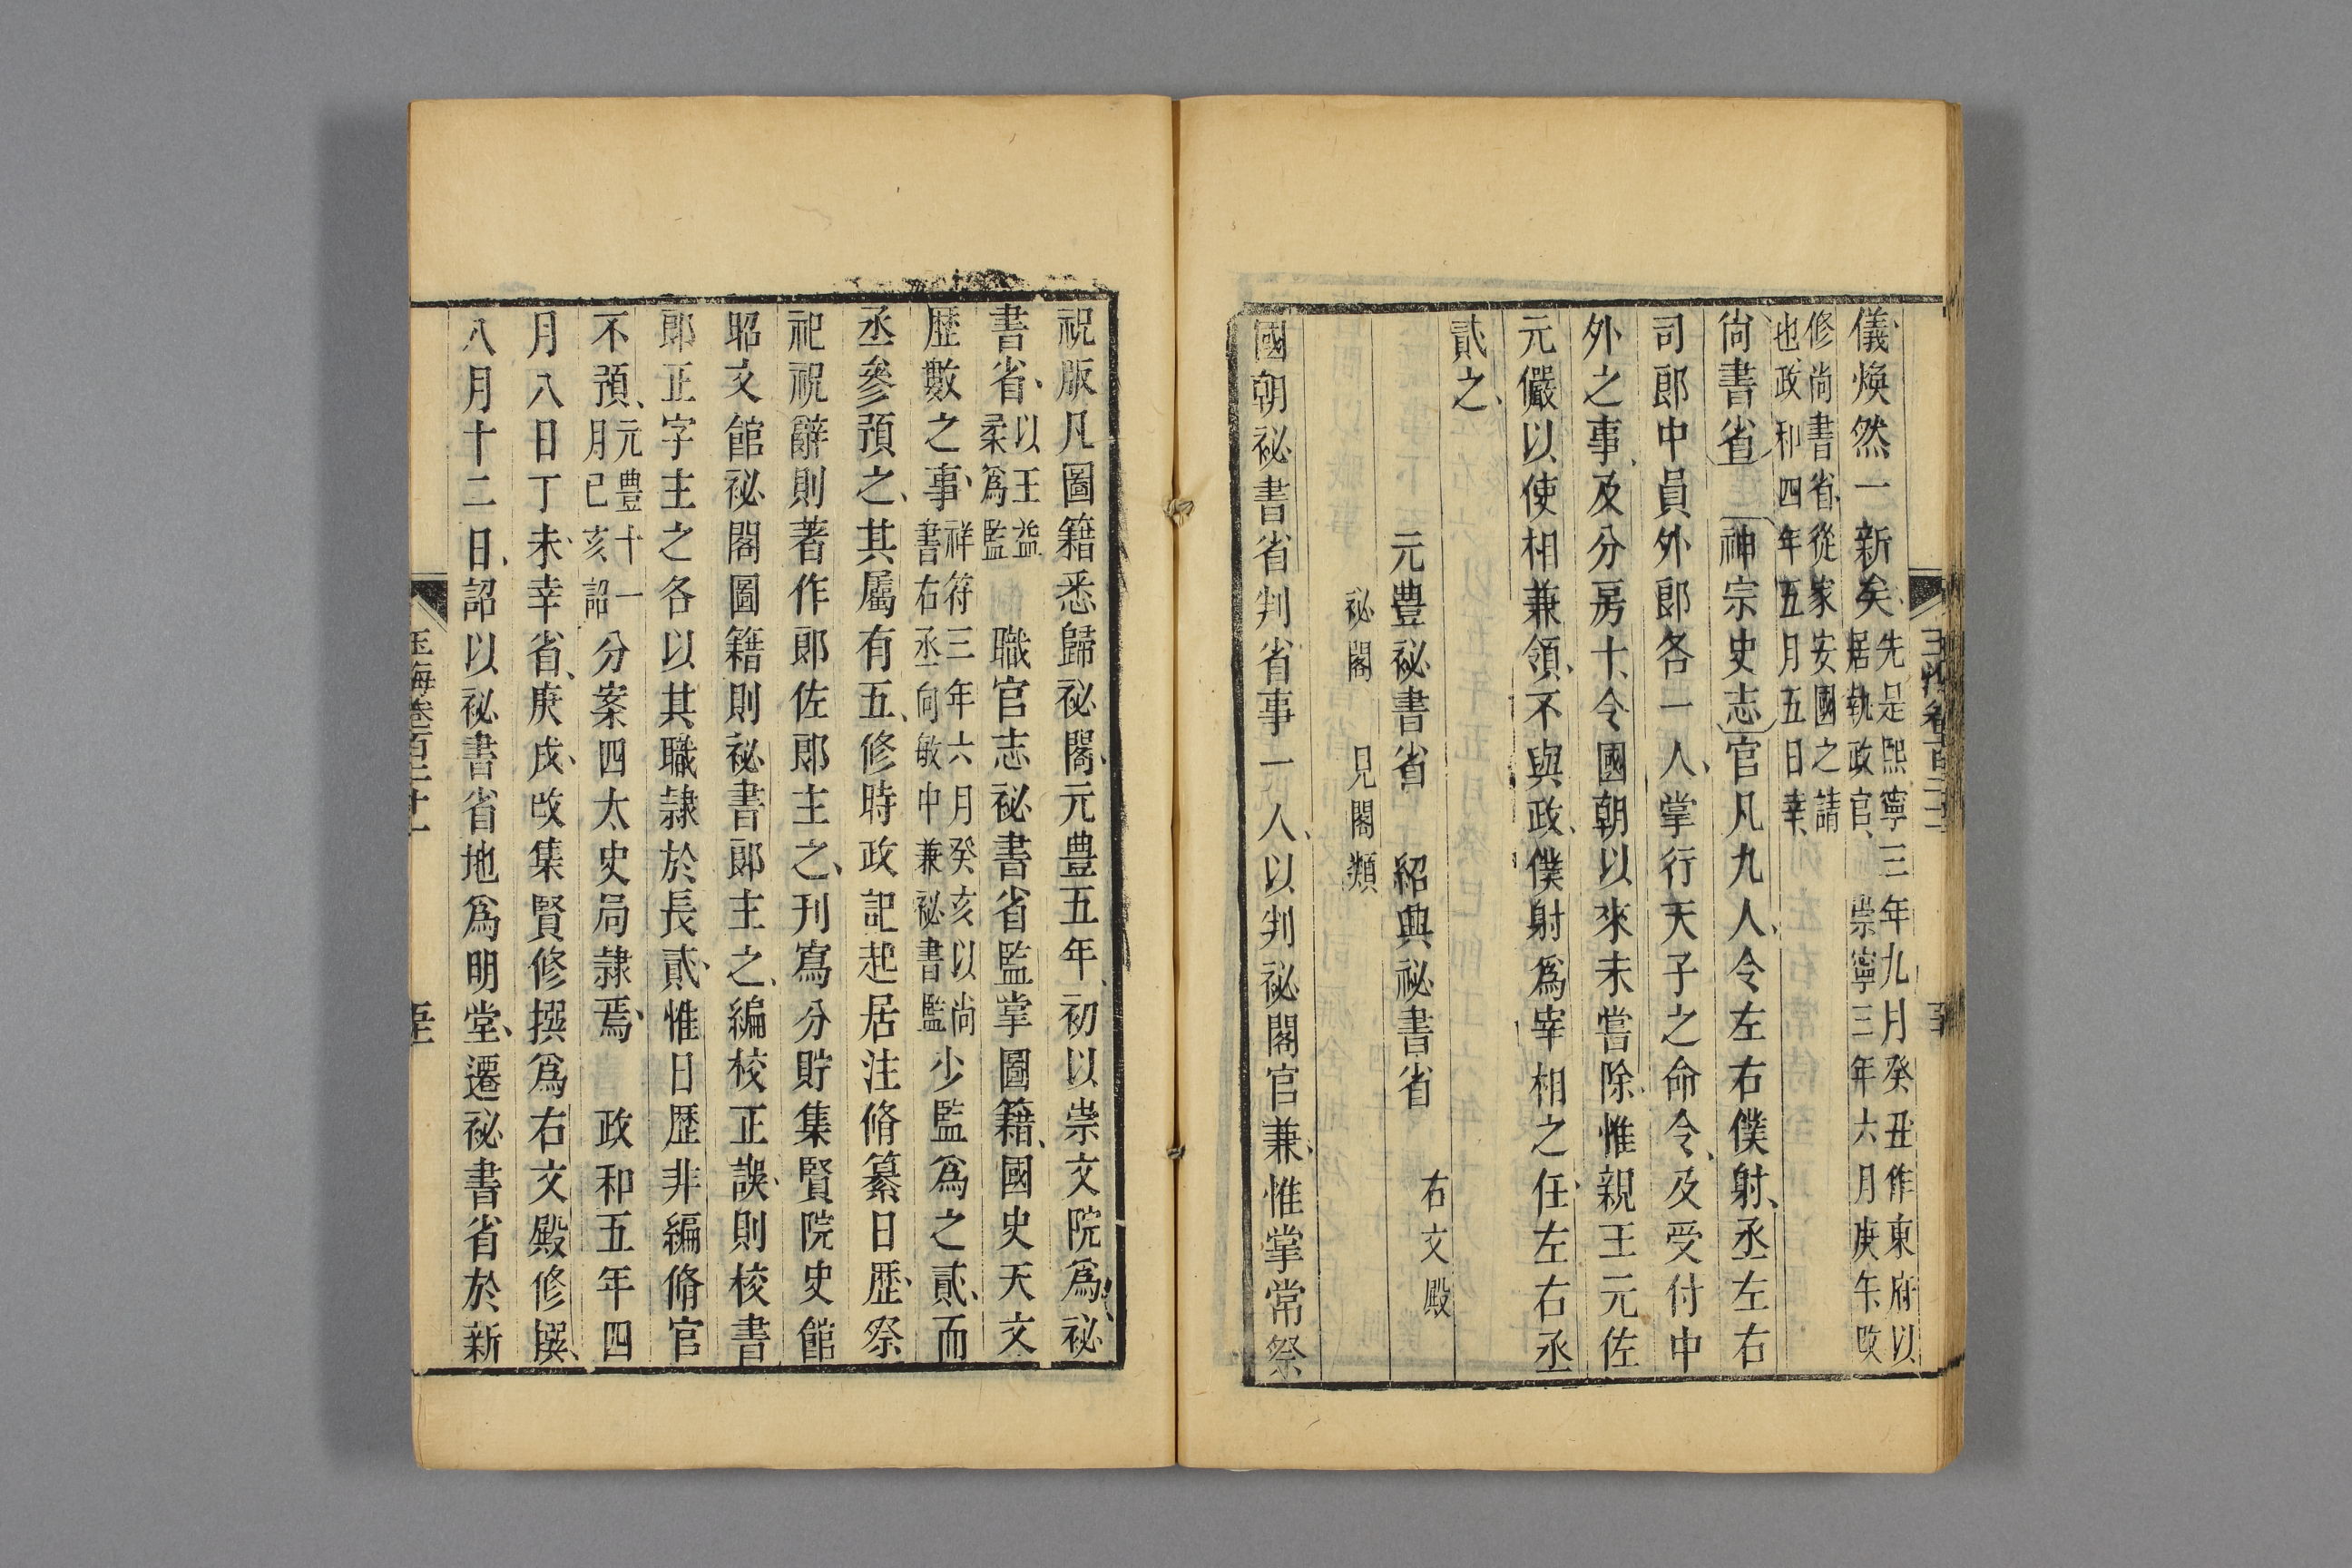 儀煥然一新矣先是熙寧三年九月癸丑作東府以居執政官崇寧三年六月庚午改
修尚書省從家安國之請也政和四年五月五日幸
尚書省　神宗史志官凡九人令左右僕射丞左右
司郎中員外郎各一人掌行天子之命令及受付中
外之事及分房十令國朝以來未嘗除惟親王元佐
元儼以使相兼領不與政僕射爲宰相之任左右丞
貳之
元豐祕書省　紹興祕書省　右文殿
祕閣　見閣類
國朝祕書省判省事一人以判祕閣官兼惟掌常祭
祝版凡圖籍悉歸祕閣元豊五年初以崇文院爲祕
書省以王益柔爲監　職官志祕書省監掌圖籍國史天文
歷數之事祥符三年六月癸亥以尚書右丞向敏中兼祕書監少監爲之貳而
丞參預之其屬有五修時政記起居注脩纂日歷祭
祀祝辭則著作郎佐郎主之刊寫分貯集賢院史館
昭文館祕閣圖籍則祕書郎主之編校正誤則校書
郎正字主之各以其職隸於長貳惟日歷非編脩官
不預元豊十一月己亥詔分案四太史局隸焉　政和五年四
月八日丁未幸省庚戌改集賢修撰爲右文殿修撰
八月十二日詔以祕書省地爲明堂遷祕書省於新
玉海卷百二十一